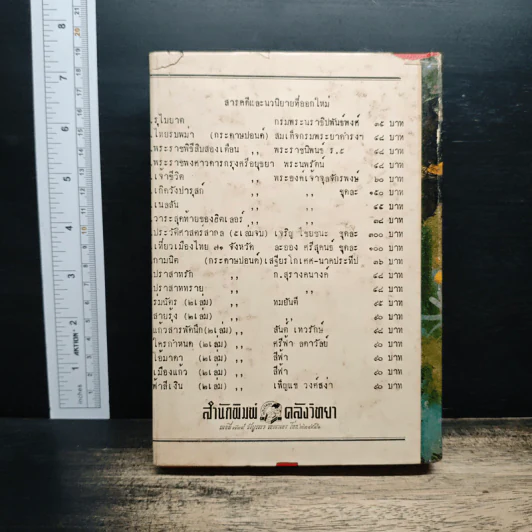 สารคดีและนวนิยายที่ออกใหม่
รุไบยาต กรมพระนราธิปพันธ์พงศ์ ๓๕ บาท
ไทยรบพม่า (กระดาษปอนด์) สมเด็จกรมพระยาดำรงฯ ๔๔ บาท
พระราชพิธีสิบสองเดือน ,, พระราชนิพนธ์ ร.๕ ๔๔ บาท
พระราชพงศาวดารกรุงศรีอยุธยา พระนพรัตน์ ๔๔ บาท
เจ้าชีวิต ,, พระองค์เจ้าจุลจักรพงษ์ ๖๐ บาท
เกิดวังปารุสก์ ,, ,, ชุดละ ๑๕๐ บาท
เนลสัน ,, ,, ๔๕ บาท
วาระสุดท้ายของฮิตเลอร์ ,, ,, ๓๔ บาท
ประวัติศาสตร์สากล (๕เล่มจบ) เจริญ ไชยชนะ ชุดละ ๓๐๐ บาท
เที่ยวเมืองไทย ๗๑ จังหวัด ละออง ศรีสุคนธ์ ชุดละ ๑๐๐ บาท
กามนิต (กระดาษปอนด์) เสฐียรโกเศศ-นาคะประทีป ๓๖ บาท
ปราสาทรัก ,, ก.สุรางคนางค์ ๔๔ บาท
ปราสาททราย ,, ,, ๔๔ บาท
ร่มฉัตร (๒เล่ม) ,, ทมยันตี ๔๕ บาท
สายรุ้ง (๒เล่ม) ,, ,, ๔๐ บาท
แก้วสารพัดนึก(๒เล่ม) ,, สันต์ เทวรักษ์ ๔๔ บาท
ใครกำหนด (๒เล่ม) ,, ศรีฟ้า ลดาวัลย์ ๔๐ บาท
เมืองแก้ว (๒เล่ม) ,, สีฟ้า ๔๐ บาท
ฟ้าสีเงิน (๒เล่ม) ,, เพ็ญแข วงศ์สง่า ๔๐ บาท
สำนักพิมพ์ คลังวิทยา